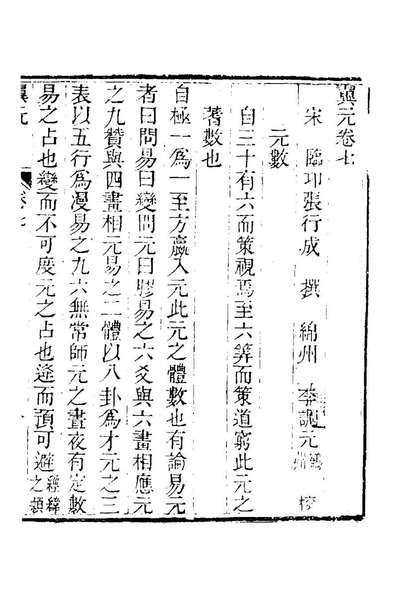 翼元卷七
宋　臨邛張行成　撰　綿州　李調元　校
元數
自三十有六而策視焉至六算而策道窮此元之
蓍數也
自極一為一至方嬴入元此元之體數也有論易元
者曰問易曰變問元曰膠易之六爻與六畫相應元
之九贊與四畫相元易之二體以八卦為才元之三
表以五行為漫易之九六無常師元之晝夜有定數
易之占也變而不可度元之占也逢而預可避經緯之類
翼元
卷七
一